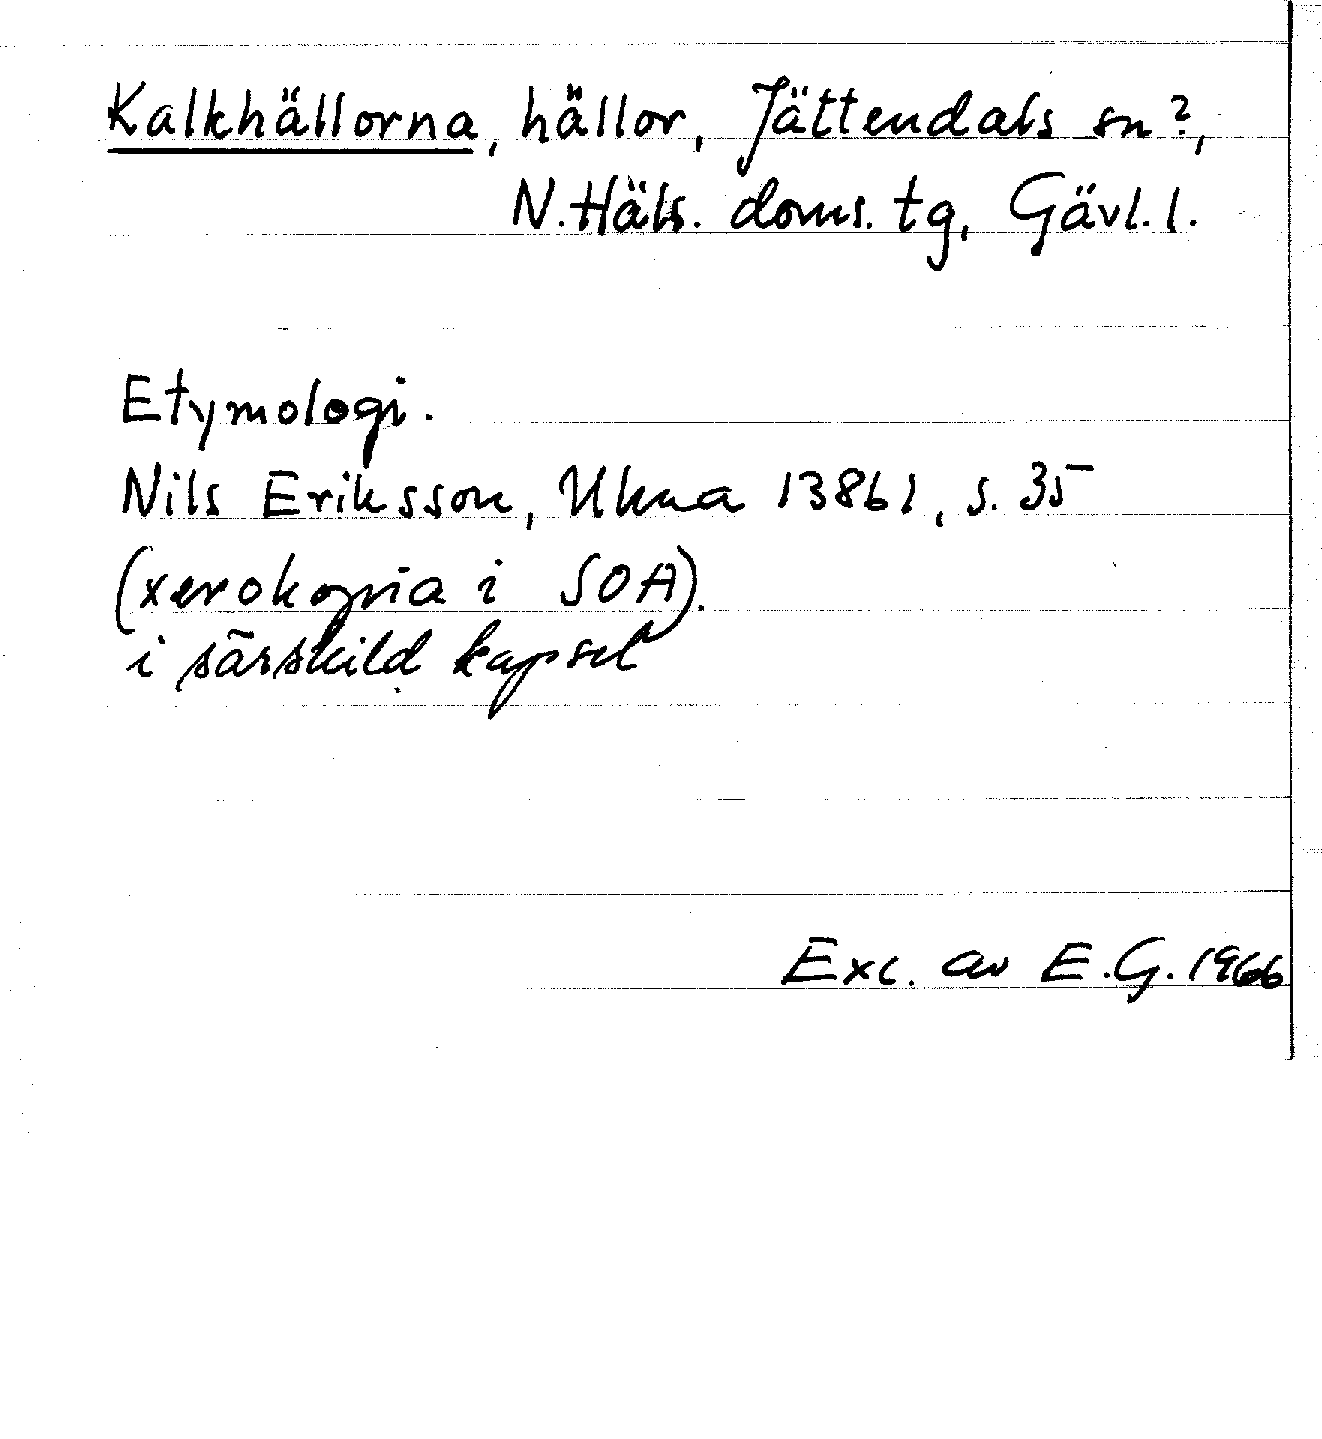 Kalkhällorna, hällor, Jättendals sn?,
N.Häls. doms. tg, Gävl. l.
Etymologi.
Nils Eriksson, Ukna 13861, s. 35
(xerokopia i SOA).
i särskild kapsel
Exc. av E.G. 1966